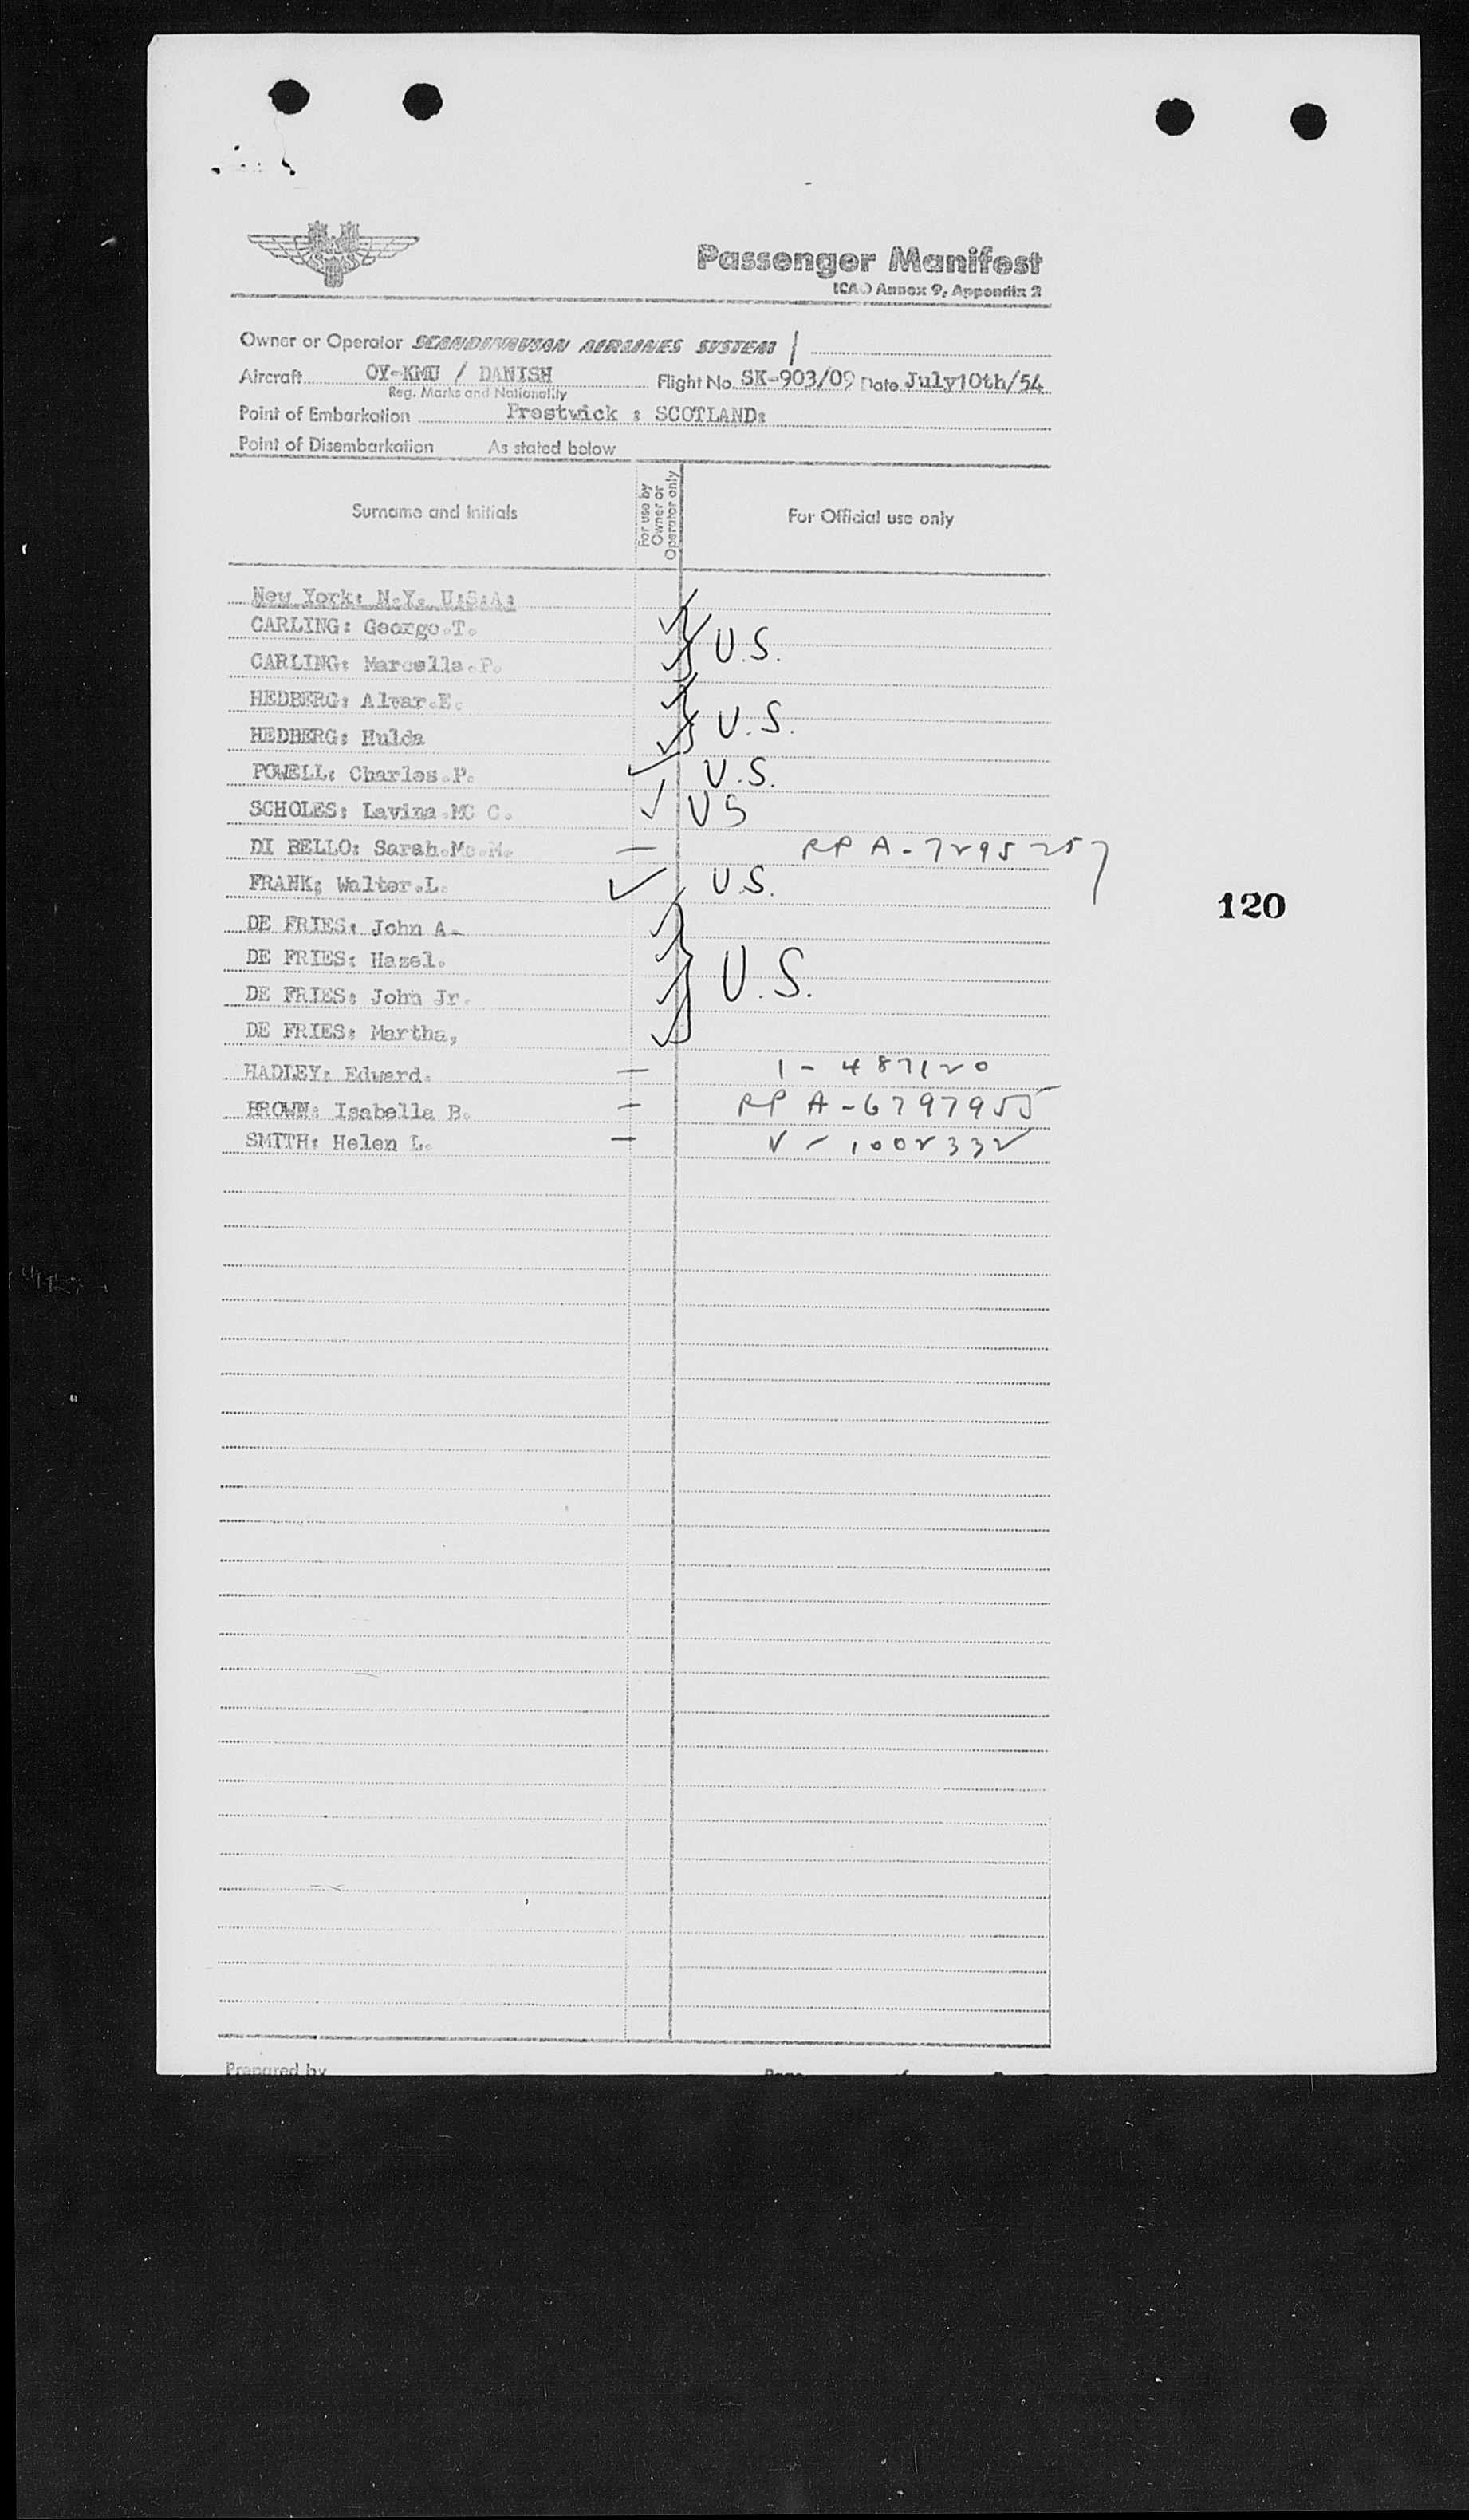 Passenger Manifest
ICAO Annex 9, Appendix 2
Owner or Operator SCANDINAVIAN AIRLINES SYSTEM
Aircraft OY-KMU / DANISH Flight No. SK-903/09 Date July10th/54
Reg. Marks and Nationality
Point of Embarkation Prestwick : SCOTLAND:
Point of Disembarkation As stated below
Surname and Initials For use by Owner or Operator only For Official use only
New York: N.Y. U:S:A:
CARLING: George.T. ✓
U.S.
CARLING: Marcella.P. ✓
HEDBERG: Alvar.E. ✓
U.S.
HEDBERG: Hulda ✓
POWELL: Charles.P. ✓ U.S.
SCHOLES: Lavina.MC C. ✓ US
DI BELLO: Sarah.Mc.M. — RP A-7295257
FRANK; Walter.L. ✓ U.S.
120
DE FRIES: John A. ✓
DE FRIES: Hazel. ✓
U.S.
DE FRIES: John Jr. ✓
DE FRIES: Martha, ✓
HADLEY: Edward. — 1-487120
BROWN: Isabella B. — RP A-6797955
SMITH: Helen L. — V-1002332
Prepared by